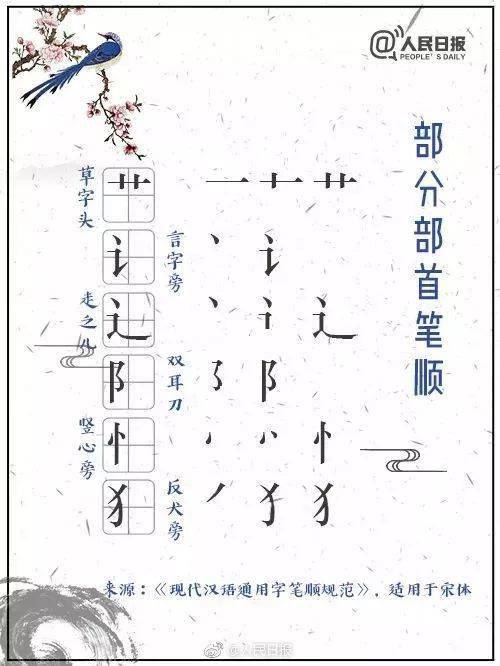 @人民日报
PEOPLE'S DAILY
部分部首笔顺
草字头 艹 一 十 艹
言字旁 讠 丶 讠
走之儿 辶 丶 辶
双耳刀 阝 阝
竖心旁 忄 忄
反犬旁 犭 丿 犭
来源：《现代汉语通用字笔顺规范》，适用于宋体
@人民日报